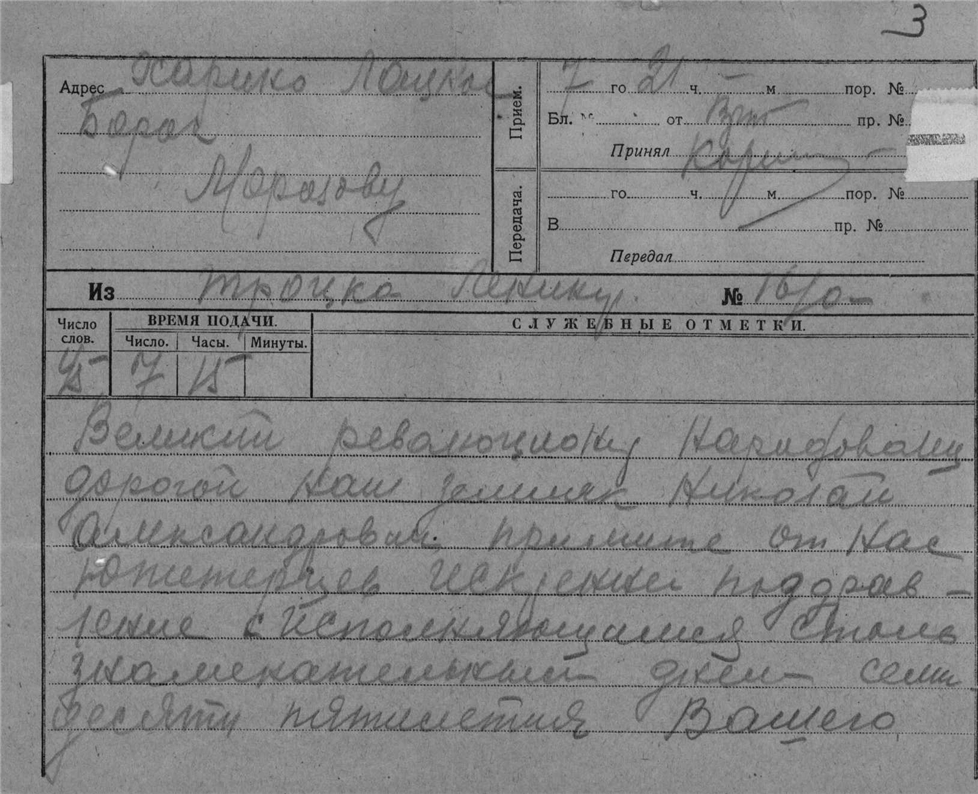 3
Адрес Харико Лоцкые
Борок
Морозову
Прием.
7 го 21 ч. м пор. №
Бл. от пр. №
Принял
Передача.
го ч. м пор. №
В пр. №
Передал
Из троцка Ленину. № 16/0
Число слов.
ВРЕМЯ ПОДАЧИ.
Число. Часы. Минуты.
СЛУЖЕБНЫЕ ОТМЕТКИ.
7 15
Великий революциону народоволц
дорогой наш земляк Николай
Александрович примите от нас
искренни поздрав-
ление с исполняющимся столь
знаменательным днем семи
десяти пятилетия Вашего